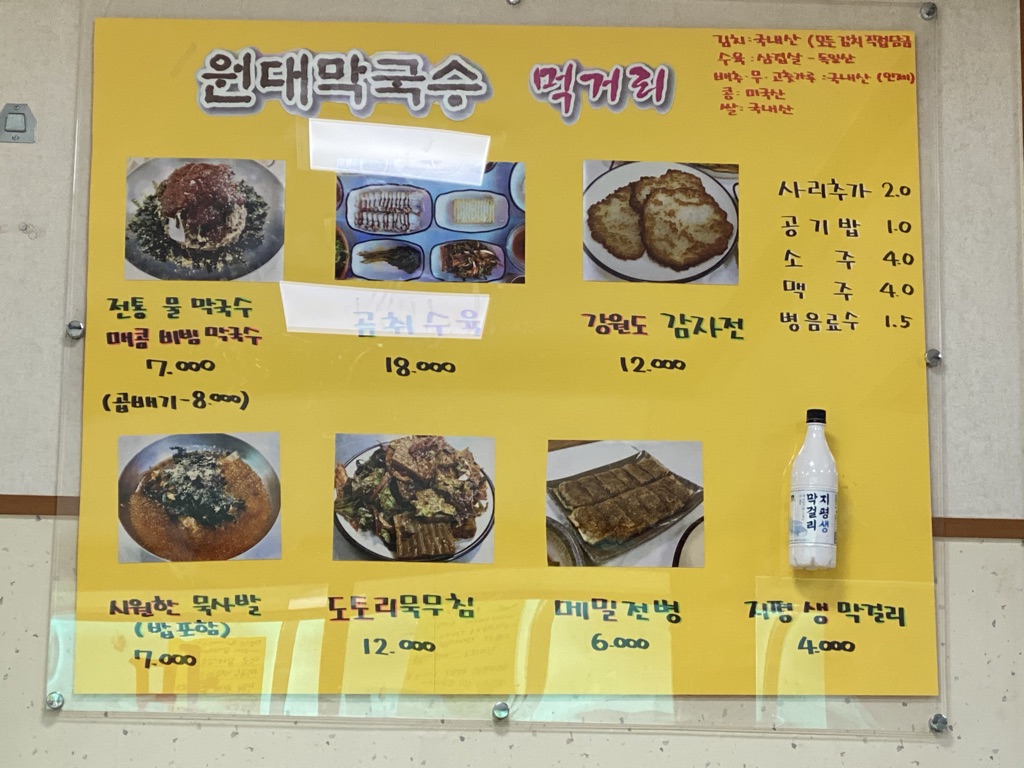 원대막국수 먹거리
김치:국내산 (모든 김치 직접담금
수육:삼겹살-독일산
배추·무·고춧가루:국내산
콩:미국산
쌀:국내산
사리추가 2.0
공기밥 1.0
소 주 4.0
맥 주 4.0
병음료수 1.5
전통 물 막국수
매콤 비빔 막국수
7.000
(곱배기-8.000)
곰취수육
18.000
강원도 감자전
12.000
시원한 묵사발
(밥포함)
7.000
도토리묵무침
12.000
메밀전병
6.000
지평생
막걸리
지평 생 막걸리
4.000